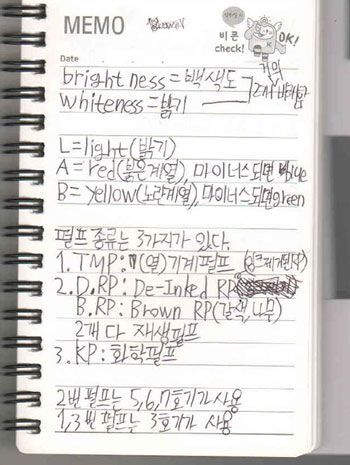 MEMO
비콘
check!
OK!
Date
거의
brightness = 백색도
whiteness = 밝기
L = light (밝기)
A = red (붉은계열), 마이너스되면 blue
B = yellow (노란계열), 마이너스되면 green
펄프 종류는 3가지가 있다.
1. TMP: (열)기계펄프
2. D.RP: De-Inked RP
B.RP: Brown RP (갈색, 나무)
2개 다 재생펄프
3. KP: 화학펄프
2번 펄프는 5,6,7호기가 사용
1,3번 펄프는 3호기가 사용